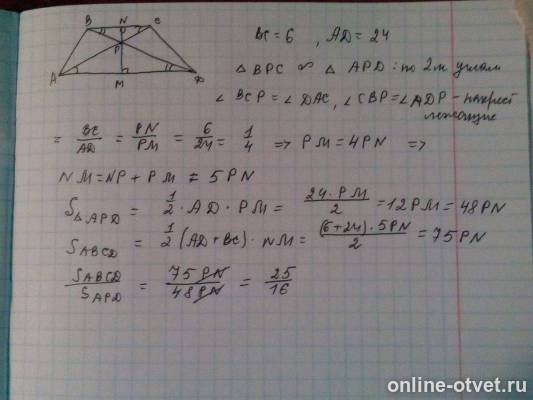 B N C
P
A M D
BC = 6 , AD = 24
△ BPC ∞ △ APD : по 2м углам
∠ BCP = ∠ DAC, ∠ CBP = ∠ ADP - накрест
лежащие
= BC/AD = PN/PM = 6/24 = 1/4 => PM = 4PN =>
NM = NP + PM = 5PN
S△APD = 1/2 · AD · PM = 24 · PM/2 = 12PM = 48PN
SABCD = 1/2 (AD + BC) · NM = (6+24) · 5PN/2 = 75PN
SABCD/SAPD = 75PN/48PN = 25/16
online-otvet.ru